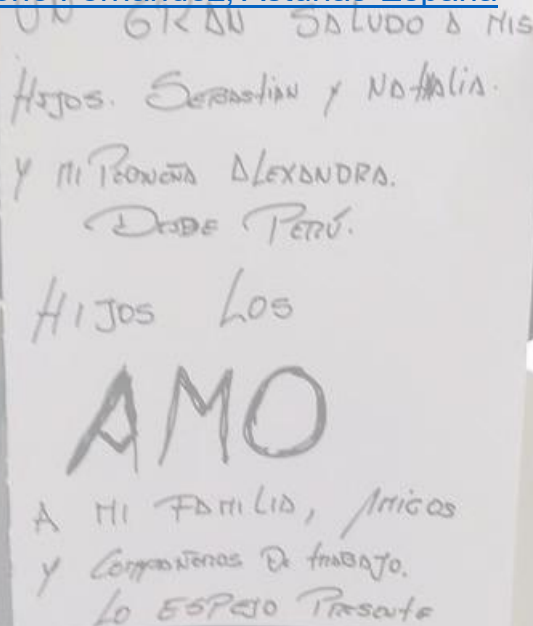 Fernandez, Asturias España
UN GRAN SALUDO A MIS
HIJOS. SEBASTIAN Y NATHALIA.
Y MI PEQUEÑA ALEXANDRA.
DESDE PERÚ.
HIJOS LOS
AMO
A MI FAMILIA, AMIGOS
Y COMPAÑEROS DE TRABAJO.
LO ESPERO PRESENTE